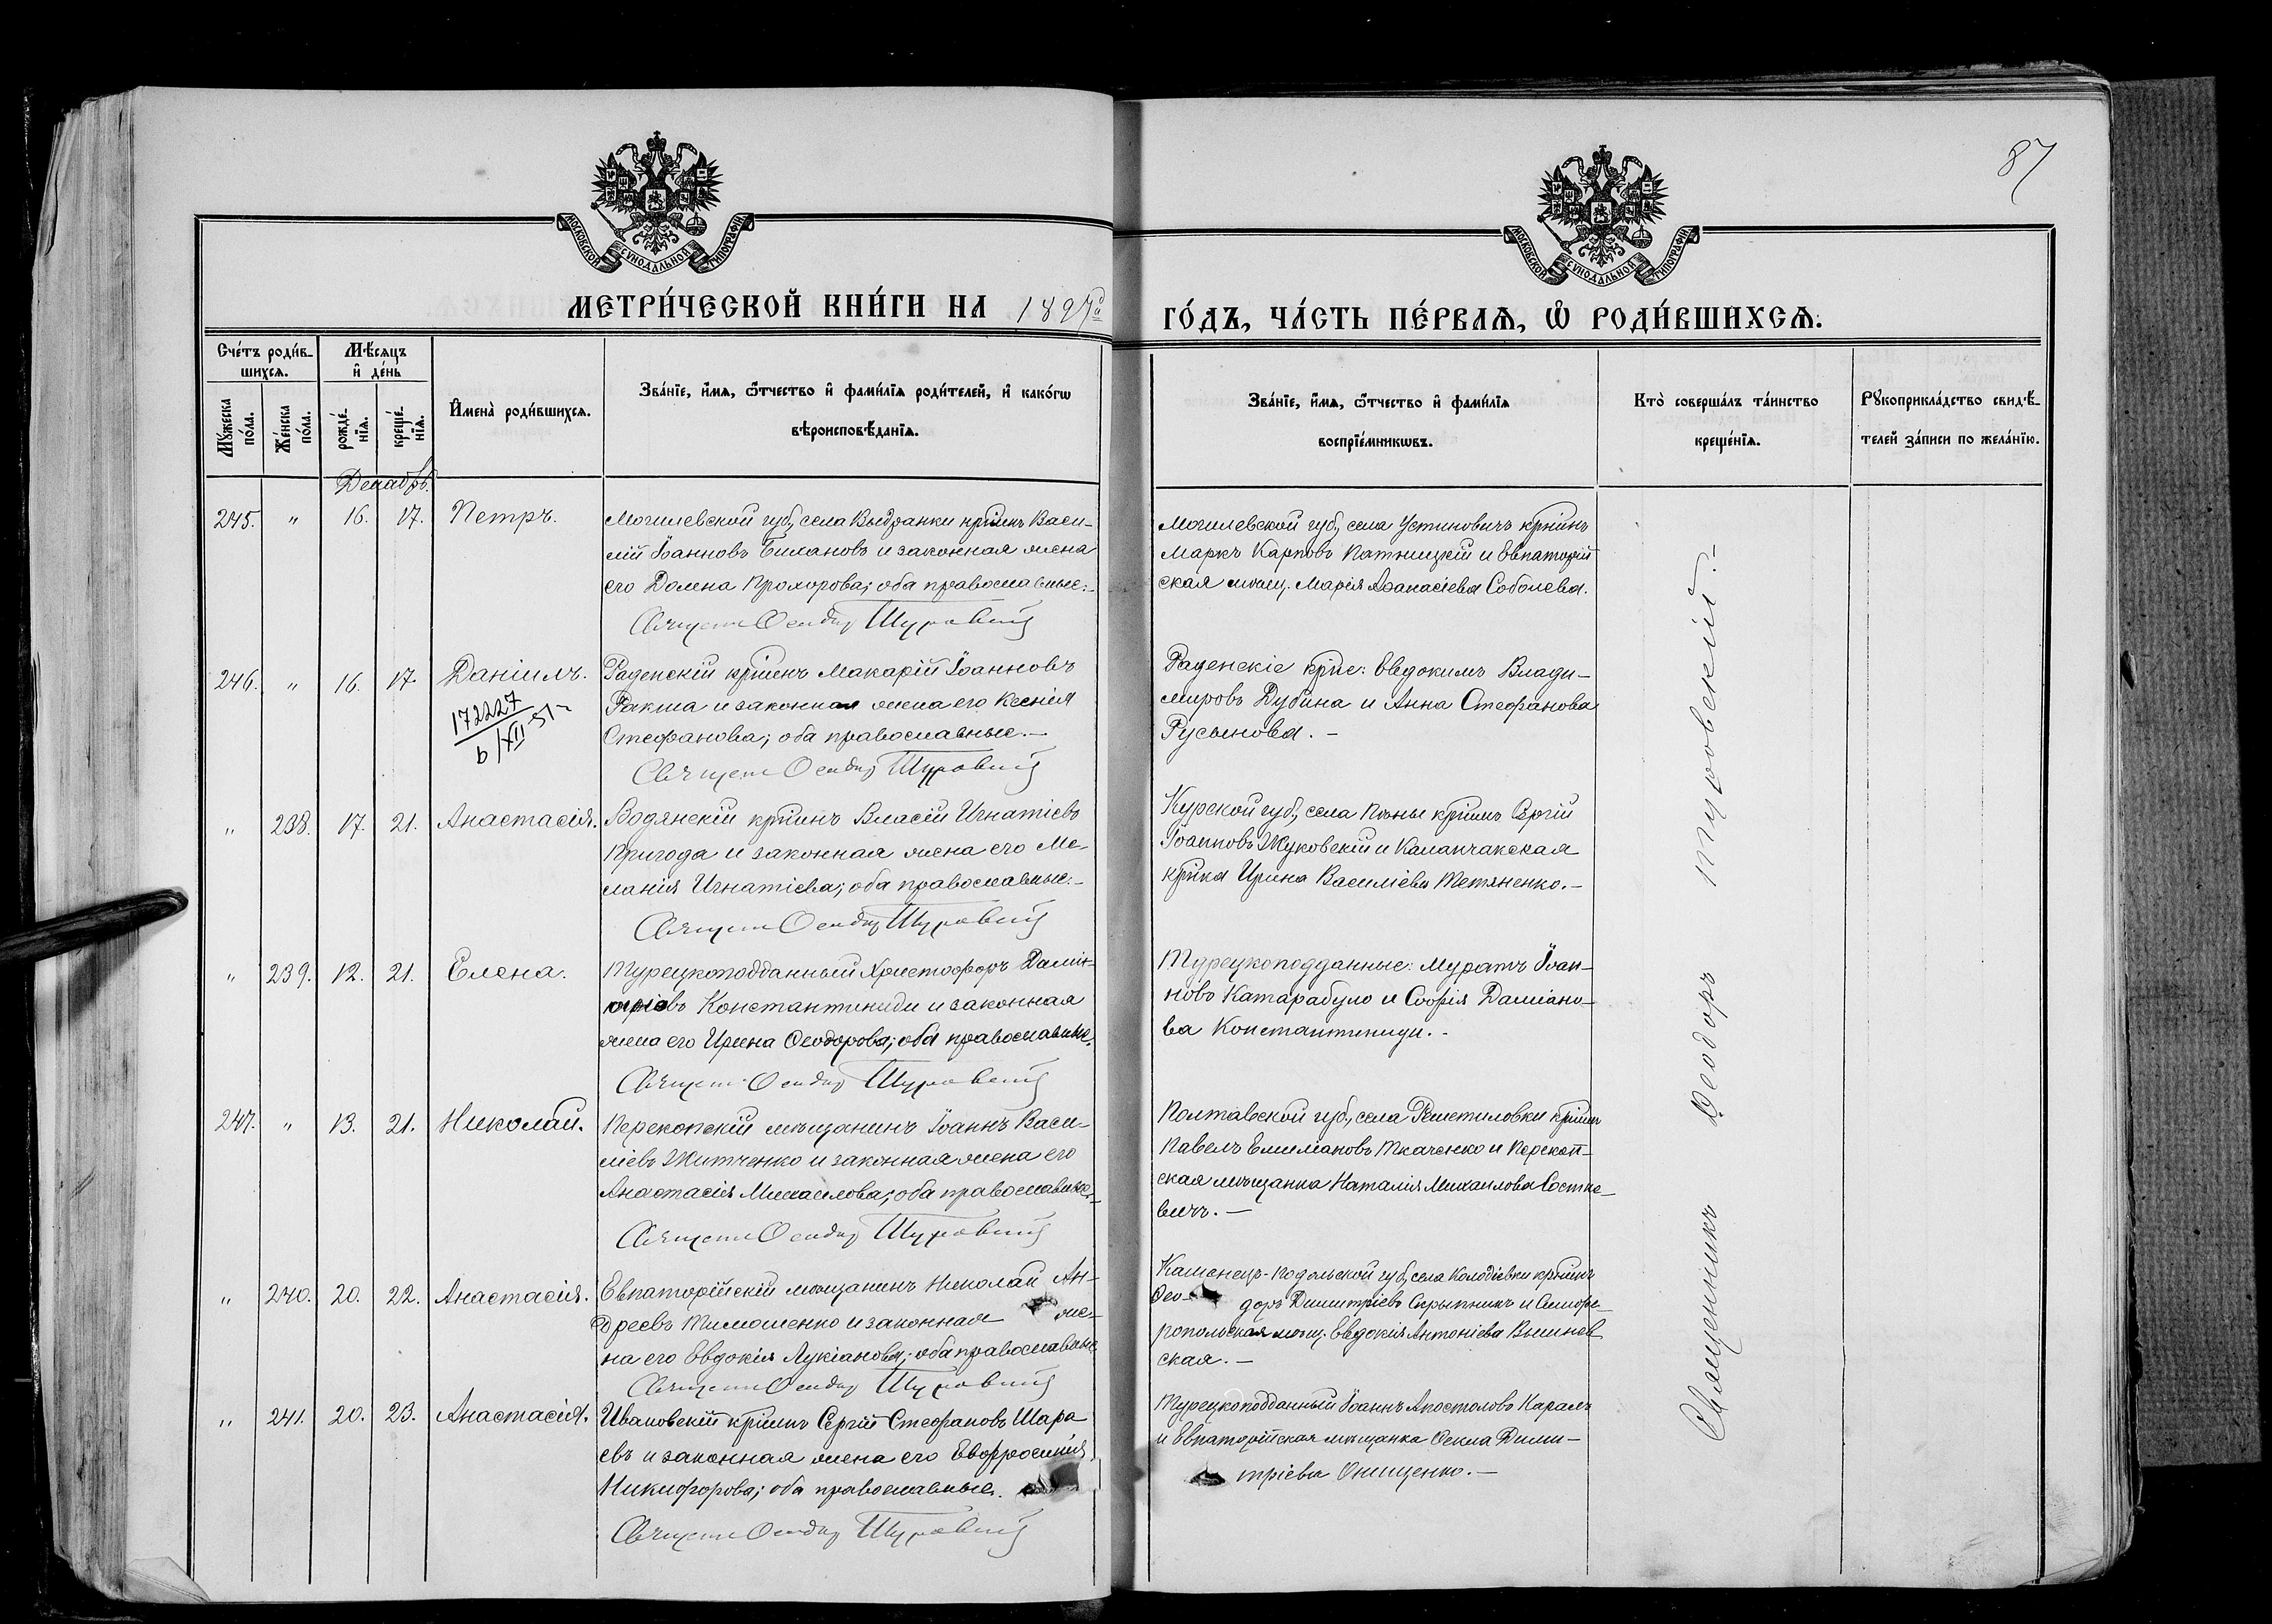 87
МОСКОВСКОЙ СѴНОДАЛЬНОЙ ТИПОГРАФІИ
МОСКОВСКОЙ СѴНОДАЛЬНОЙ ТИПОГРАФІИ
МЕТРИ́ЧЕСКОЙ КНИ́ГИ НА 1897й
ГО́ДЪ, ЧА́СТЬ ПЕ́РВАѦ, Ѡ҆ РОДИ́ВШИХСѦ.
Сче́тъ роди́в-
шихсѧ.
Мѣ́сѧцъ
и҆ де́нь
Мꙋ́жеска по́ла.
Же́нска по́ла.
рожде́-
нїѧ.
креще́-
нїѧ.
И҆мена̀ роди́вшихсѧ.
Зва́нїе, и҆́мѧ, ѻ҆́тчество и҆ фами́лїѧ роди́телей, и҆ како́гѡ
вѣроисповѣ́данїѧ.
Зва́нїе, и҆́мѧ, ѻ҆́тчество и҆ фами́лїѧ
воспрїе́мникѡвъ.
Кто̀ соверша́лъ та́инство
креще́нїѧ.
Рꙋкоприкла́дство свидѣ́-
телей за́писи по жела́нїю.
Декабрь.
245. " 16. 17. Петръ.
Могилевской губ, села Выдранки кр͠інъ Васи-
лій Іоанновъ Биханов и законная жена
его Домна Прохорова; оба православные.-
Священ Ѳеодор Щуровский
Могилевской губ, села Устиновичъ кр͠інъ
Маркъ Карповъ Пятницкій и Евпаторій-
ская мѣщ. Марія Аѳанасіева Соболева.
246. " 16. 17. Даніилъ.
172227
6/XII-51г
Раденскій кр͠інъ Макарій Іоанновъ
Ракша и законная жена его Ксенія
Стефанова; оба православные.-
Священ Ѳеодор Щуровский
Раденскіе кр͠не: Евдокимъ Влади-
мировъ Дубина и Анна Стефанова
Русынова.-
" 238. 17. 21. Анастасія.
Водянскій кр͠інъ Власій Игнатіевъ
Пригода и законная жена его Ме-
ланія Игнатіева; оба православные.-
Священ Ѳеодор Щуровский
Курской губ, села кр͠інъ Сергій
Іоанновъ Жуковскій и Каланчакская
кр͠нка Ирина Василіева Тетяненко.-
" 239. 12. 21. Елена.
Турецкоподданный Христофоръ
Константиниди и законная
жена его Ирина Ѳеодорова; оба православные.
Священ Ѳеодор Щуровский
Турецкоподданные: Муратъ Іоан-
новъ Катарабуло и Софія Даміано-
ва Константиниди.-
247. " 13. 21. Николай.
Перекопскій мѣщанинъ Іоаннъ Васи-
ліевъ Житченко и законная жена его
Анастасія Михаилова; оба православные.-
Священ Ѳеодор Щуровский
Полтавской губ, села Решетиловки кр͠інъ
Павелъ Емиліановъ Ткаченко и Перекоп-
ская мѣщанка Наталія Михаилова Состке-
вичъ.-
" 240. 20. 22. Анастасія.
Евпаторійскій мѣщанинъ Николай Ан-
дреевъ Тимошенко и законная же-
на его Евдокія Лукіанова; оба православные
Священ Ѳеодор Щуровский
Каменецъ-Подольской губ, села Колодіевки кр͠інъ
Ѳео- доръ Димитріевъ Скрыпникъ и Симфе-
ропольская мѣщ. Евдокія Антоніева Вышнев-
ская.-
" 241. 20. 23. Анастасія.
Ивановскій кр͠інъ Сергій Стефановъ Шара-
евъ и законная жена его Евфросинія
Никифорова; оба православные.
Священ Ѳеодор Щуровский
Турецкоподданный Іоаннъ Апостоловъ Карали
и Евпаторійская мѣщанка Ѳекла Дими-
тріева Онищенко.-
Священникъ Ѳеодоръ Щуровскій.-